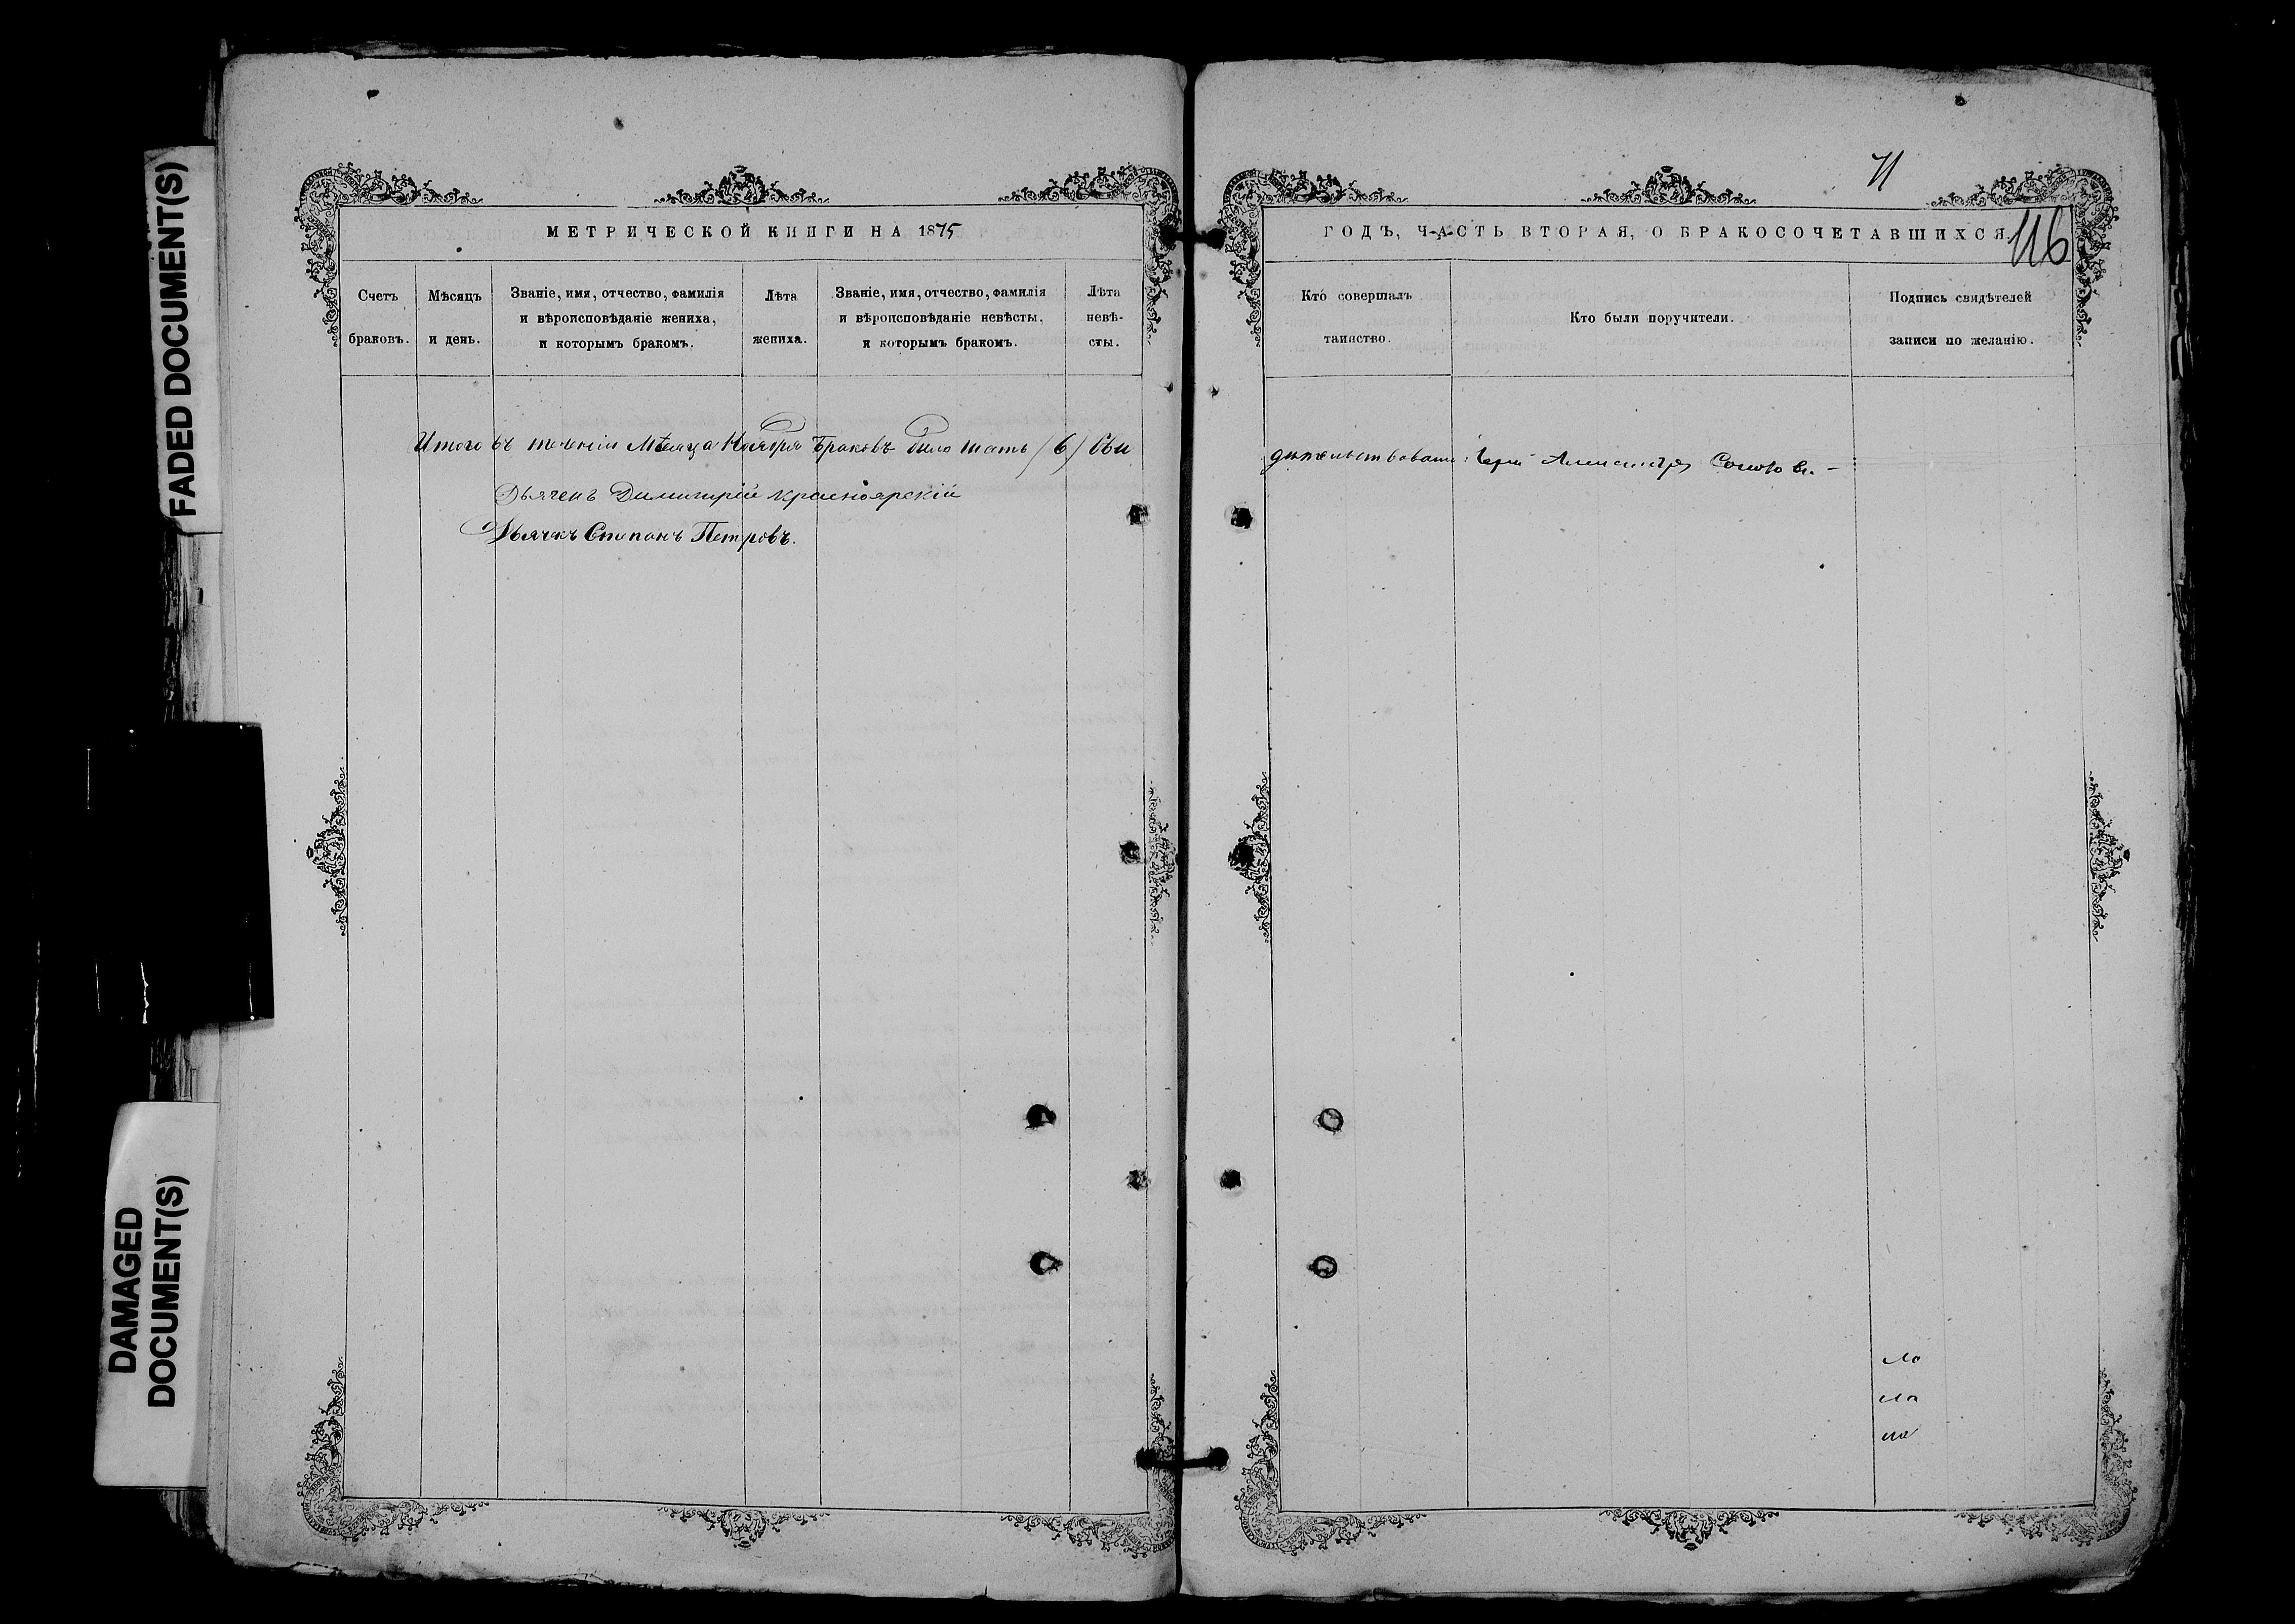 FADED DOCUMENT(S)
DAMAGED
DOCUMENT(S)
МЕТРИЧЕСКОЙ КНИГИ НА 1875
Счетъ
браковъ.
Мѣсяцъ
и день.
Званіе, имя, отчество, фамилія
и вѣроисповѣданіе жениха,
и которымъ бракомъ.
Лѣта
жениха.
Званіе, имя, отчество, фамилія
и вѣроисповѣданіе невѣсты,
и которымъ бракомъ.
Лѣта
невѣ-
сты.
Итого въ теченіи Мѣсяца Ноября Браковъ было шесть (6) Сви
Дьячекъ Димитрій Красноярскій
Дьячкъ Степанъ Петровъ.
71
116
ГОДЪ, ЧАСТЬ ВТОРАЯ, О БРАКОСОЧЕТАВШИХСЯ.
Кто совершалъ
таинство.
Кто были поручители.
Подпись свидѣтелей
записи по желанію.
дѣтельствовали:
ло
ла
ла